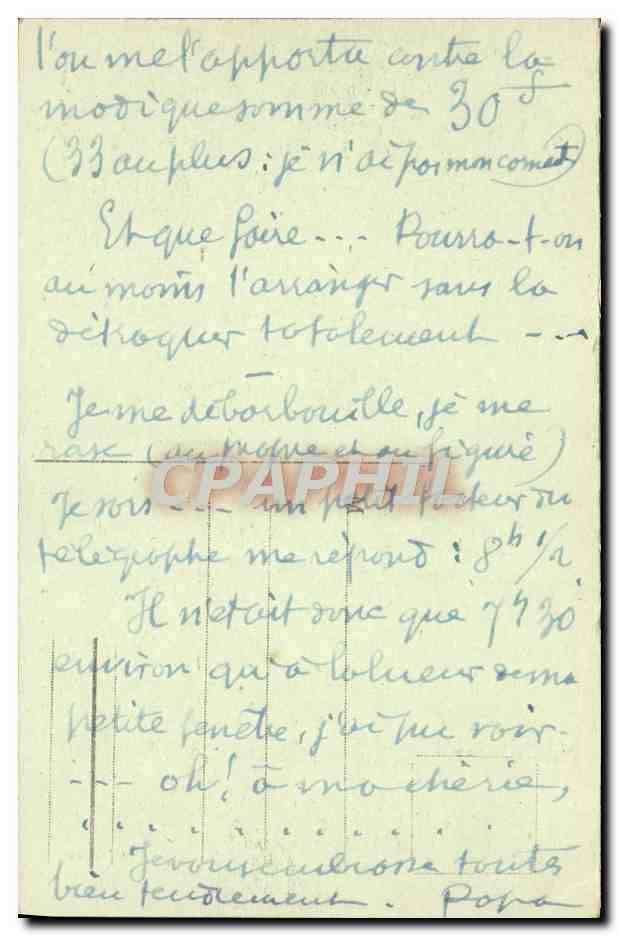 l'on me l'apporta contre la
modique somme de 30 f
(33 au plus : je n'ai pas mon carnet)
Et que faire --- Pourra-t-on
au moins l'arranger sans la
détraquer totalement ---
Je me débarbouille, je me
rase (au propre et au figuré)
Je sors --- un petit facteur du
télégraphe me répond : 8h 1/2
Il n'était donc que 7h30
environ qu'à la lueur de ma
petite fenêtre, j'ai pu voir-
--- oh! ô ma chérie,
. . . . . . . . . . .
Je vous embrasse toutes
bien tendrement. Papa
CPAPHIL